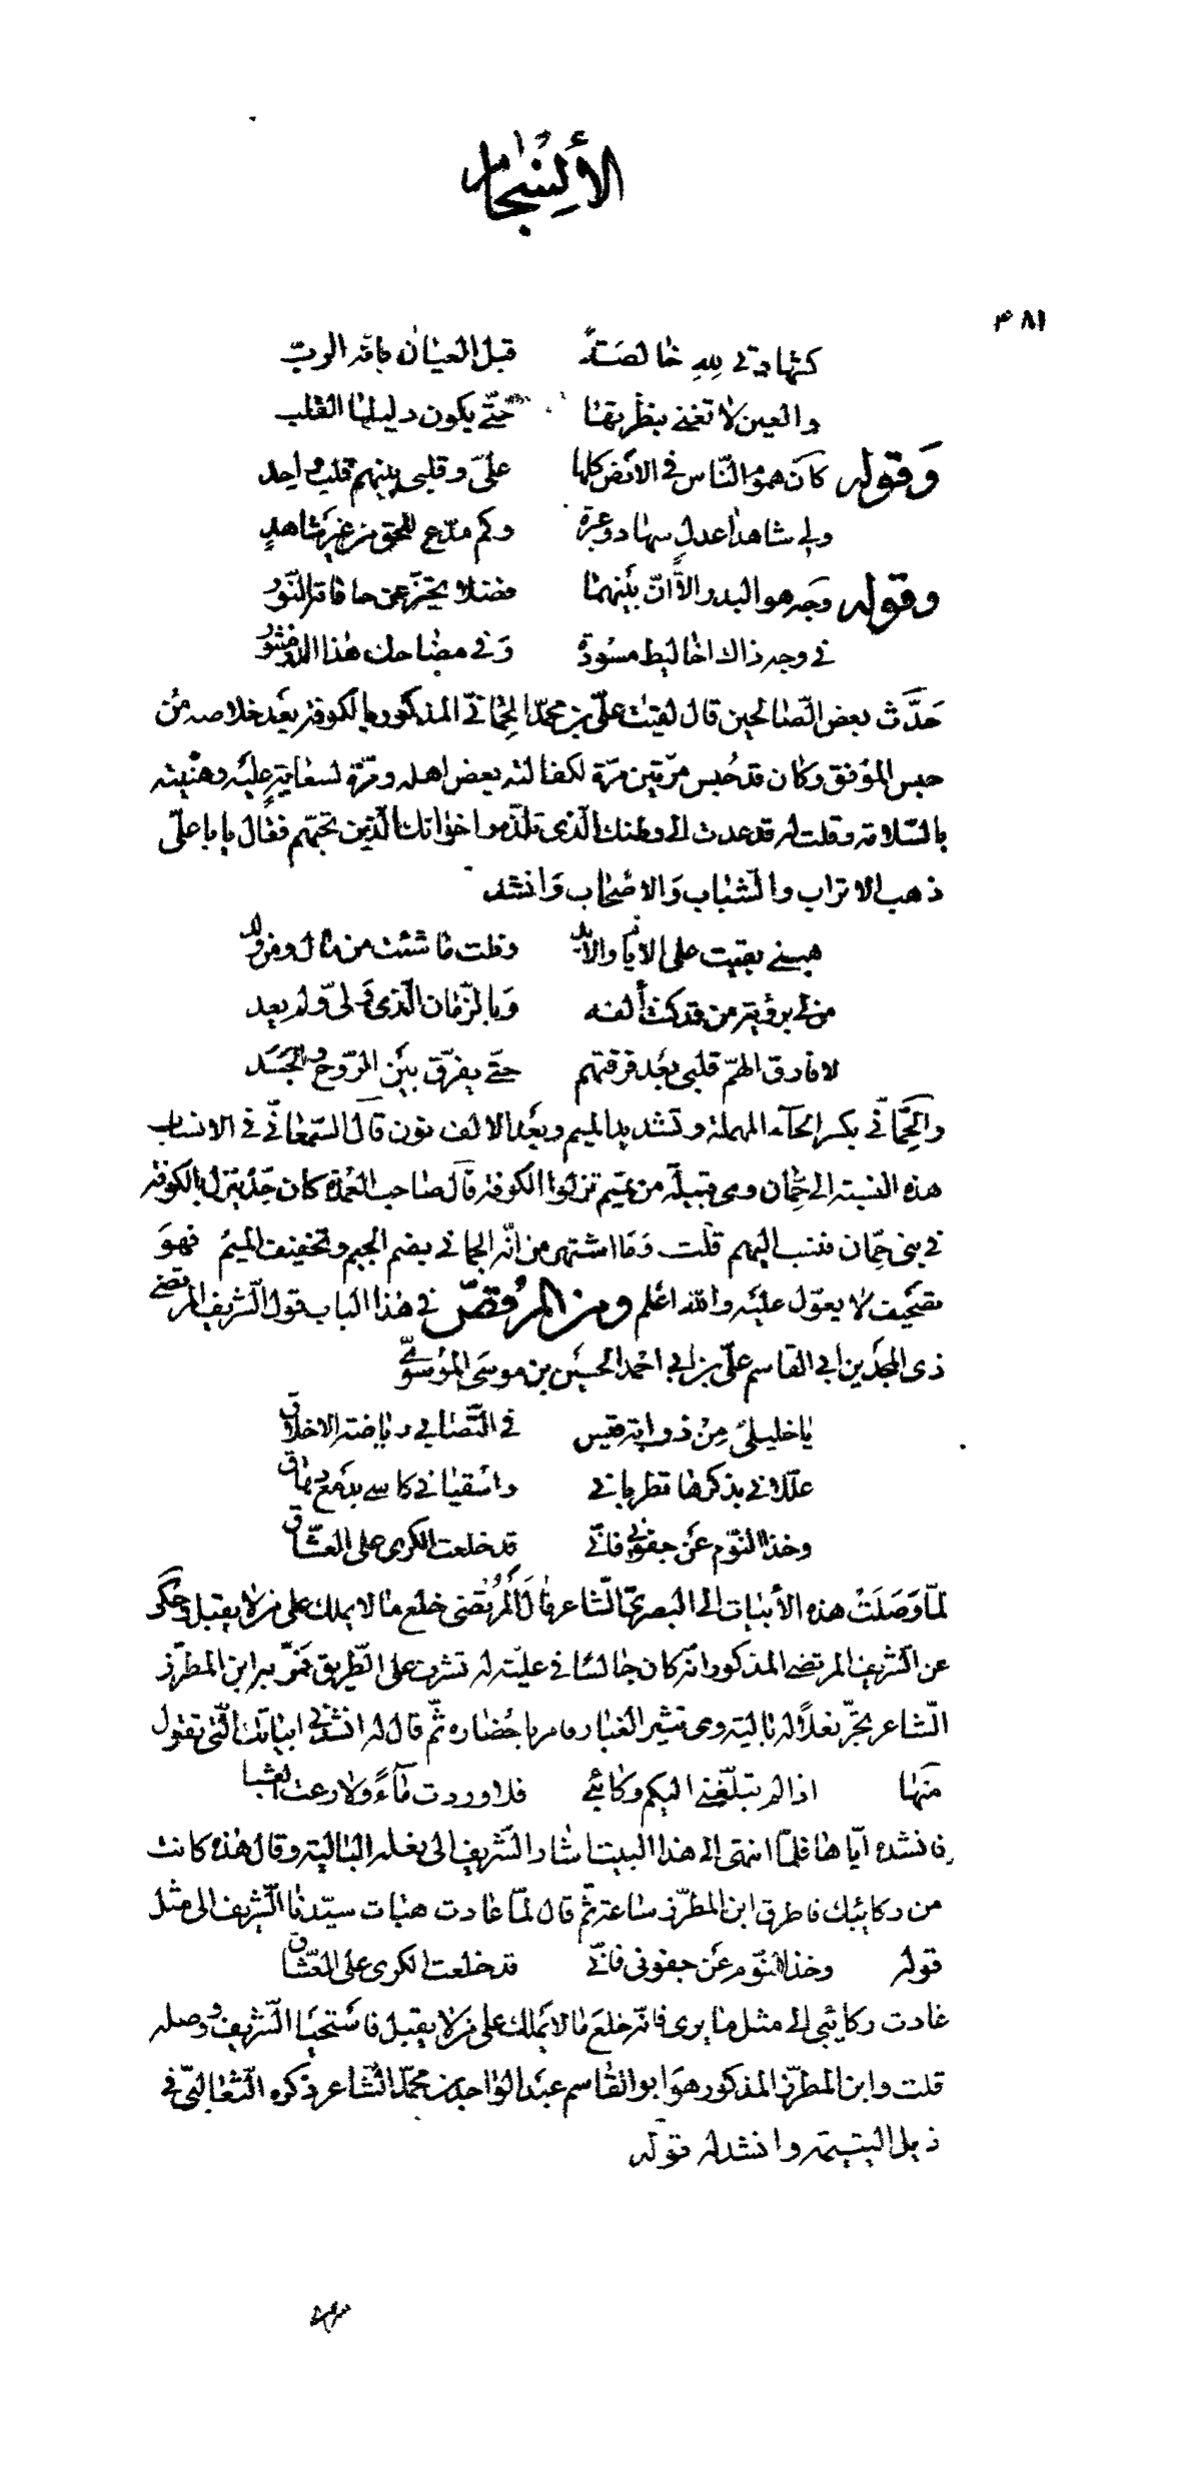 الأنسجام
٤٨١
كشهادتي لله خالصة قبل العيان بانه الرب
والعين لا تغني بنظرتها حتّى يكون دليلها القلب
وَقوله كأن هموم النّاس في الارض كلها علىّ وقلبي بينهم قلب واحد
ولي شاهدا عدل سهاد وعبرة وكم مدّع للحق من غير شاهدٍ
وقوله وجه هو البدر الّا انّ بينهما فضلا عن حافاته النّور
في وجه ذاك اخاليط مسوّدة وَفي مضاحك هذا الدر منثور
حَدَّث بعض الصّالحين قال لقيت علىّ بن محمّد الحِمّانيّ المذكور بالكوفة بعَد خلاصه من
حبس الموفق وكان قد حُبس مرّتين مرّة لكفالته بعض اهله ومرّة لسعايةٍ عليه وهنّيته
بالسّلامة وقلت له قد عدت الى وطنك الّذى تلذّه واخوانك الّذين تحبّهم فقال يابا علىّ
ذهب الاتراب والشّباب وَالاصحاب وَانشد
هبني بقيت على الايّام والابد ونلت ما شئت من مال ومن ولد
من لي برؤية من قد كنت ألفه وَبالزّمان الّذى ولّى ولم يعد
لا فارق الهمّ قلبي بعَد فرقتهم حتّى يفرّق بيَن الرّوح والجسَد
والحِمّانيّ بكسر الحآء المهملة وتشديد الميم وبعَد الالف نون قال السّمعانيّ في الانساب
هذه النسبة الى حمّان وهى قبيلة من تميم نزلوا الكوفة قال صاحب العمدة كان جدّه ينزل بالكوفة
في بنى حمّان فنسب اليهم قلت وَما اشتهر من انّه الجماني بضم الجيم وتخفيف الميم فهوَ
تصحيف لا يعوّل عليَه والله اعلم ومن المرُقصّ في هذا الباب قول الشّريف المرتضى
ذى المجدَين ابي القاسم علىّ بن ابي احمد الحسَين بن موسى الموُسوىّ
يا خليلىّ مِن ذوابة قيس في التّصابي رياضة الاخلاق
علّلاني بذكرها تطرباني واسقياني كاسي بدمع دهاق
وخذا النّوم عَن جفوني فانّى قد خلعت الكرى على العشّاق
لمّا وَصَلَتْ هذه الأبيات الى البصرىّ الشّاعر قال المُرتضى خلع ما لا يملك على من لا يقبل وحكى
عن الشّريف المرتضى المذكور انّه كان جالسًا في عليّة له تشرف على الطّريق فمرّ به ابن المطرّز
الشّاعر يجرّ نعلاً له بالية وهى تثير الغبار فامر باحضاره ثمّ قال له انشدني ابياتك الّتى تقول
منها اذا لم تبلّغنى اليكم ركائبي فلا وردت مآءً ولا رعت العشبا
فانشده ايّاها فلمّا انتهى الى هذا البيت اشار الشّريف الى نعله البالية وقال هذه كانت
من ركائبك فاطرق ابن المطرّز ساعة ثمّ قال لمّا عادت هبات سيّدنا الشّريف الى مثل
قوله وخذا النّوم عَن جفونى فانّى قد خلعت الكرى على العشّاق
عادت ركائبي الى مثل ما يرى فانّه خلعَ ما لا يَملك على من لا يقبل فاستحيا الشّريف ووصله
قلت وابن المطرّز المذكور هوَ ابو القاسم عبَد الوٰاحد بن محمّد الشّاعر ذكره الثّعالبيّ في
ذيل اليتيمة وانشد له قوله